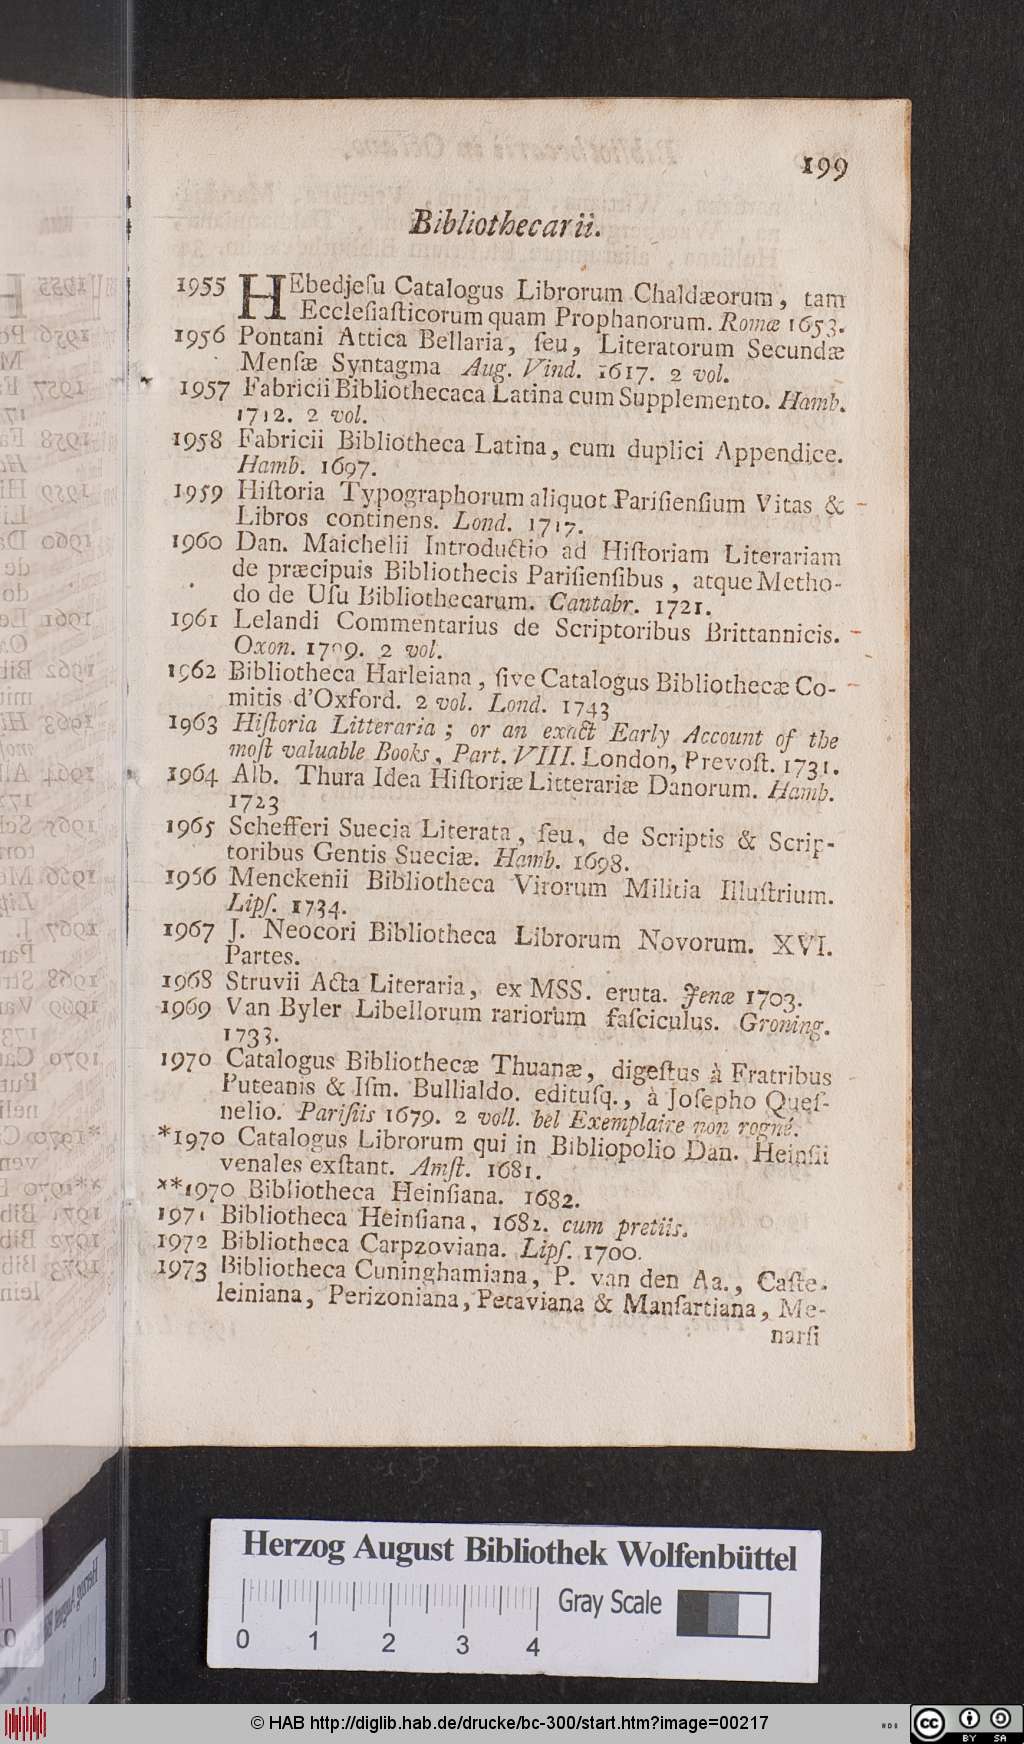 199
Bibliothecarii.
1955 HEbedjeſu Catalogus Librorum Chaldæorum, tam
Eccleſiaſticorum quam Prophanorum. Romæ 1653.
1956 Pontani Attica Bellaria, ſeu, Literatorum Secundæ
Menſæ Syntagma Aug. Vind. 1617. 2 vol.
1957 Fabricii Bibliothecaca Latina cum Supplemento. Hamb.
1712. 2 vol.
1958 Fabricii Bibliotheca Latina, cum duplici Appendice.
Hamb. 1697.
1959 Hiſtoria Typographorum aliquot Pariſienſium Vitas &
Libros continens. Lond. 1717.
1960 Dan. Maichelii Introductio ad Hiſtoriam Literariam
de præcipuis Bibliothecis Pariſienſibus, atque Metho-
do de Uſu Bibliothecarum. Cantabr. 1721.
1961 Lelandi Commentarius de Scriptoribus Brittannicis.
Oxon. 1709. 2 vol.
1962 Bibliotheca Harleiana, ſive Catalogus Bibliothecæ Co-
mitis d'Oxford. 2 vol. Lond. 1743
1963 Hiſtoria Litteraria; or an exact Early Account of the
moſt valuable Books, Part. VIII. London, Prevoſt. 1731.
1964 Alb. Thura Idea Hiſtoriæ Litterariæ Danorum. Hamb.
1723
1965 Schefferi Suecia Literata, ſeu, de Scriptis & Scrip-
toribus Gentis Sueciæ. Hamb. 1698.
1966 Menckenii Bibliotheca Virorum Militia Illuſtrium.
Lipſ. 1734.
1967 J. Neocori Bibliotheca Librorum Novorum. XVI.
Partes.
1968 Struvii Acta Literaria, ex MSS. eruta. Jenæ 1703.
1969 Van Byler Libellorum rariorum faſciculus. Groning.
1733.
1970 Catalogus Bibliothecæ Thuanæ, digeſtus à Fratribus
Puteanis & Iſm. Bullialdo. edituſq., à Joſepho Queſ-
nelio. Pariſiis 1679. 2 voll. bel Exemplaire non rogné.
*1970 Catalogus Librorum qui in Bibliopolio Dan. Heinſii
venales exſtant. Amſt. 1681.
**1970 Bibliotheca Heinſiana. 1682.
1971 Bibliotheca Heinſiana, 1682. cum pretiis.
1972 Bibliotheca Carpzoviana. Lipſ. 1700.
1973 Bibliotheca Cuninghamiana, P. van den Aa., Caſte-
leiniana, Perizoniana, Petaviana & Manſartiana, Me-
narſi
Herzog August Bibliothek Wolfenbüttel
Gray Scale
0 1 2 3 4
© HAB http://diglib.hab.de/drucke/bc-300/start.htm?image=00217
cc BY SA